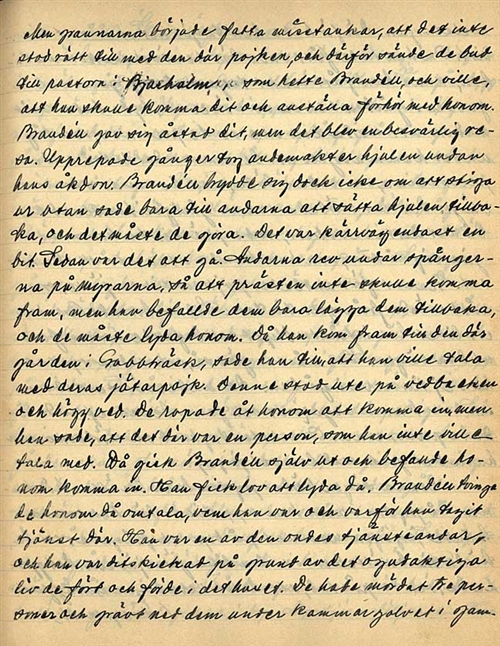 Men grannarna började fatta misstankar, att det inte
stod rätt till med den där pojken, och därför sände de bud
till pastorn i Bjurholm, som hette Brandell, och ville,
att han skulle komma dit och anställa förhör med honom.
Brandell gav sig åstad dit, men det blev en besvärlig re-
sa. Upprepade gånger tog andemakter hjulen undan
hans åkdon. Brandell brydde sig dock icke om att stiga
ur utan sade bara till andarna att sätta hjulen tillba-
ka, och det måste de göra. Det var kärrväg endast en
bit. Sedan var det att gå. Andarna rev undan spånger-
na på myrarna, så att prästen inte skulle komma
fram, men han befallde dem bara lägga dem tillbaka,
och de måste lyda honom. Då han kom fram till den där
gården i Gabbträsk, sade han till, att han ville tala
med deras jätarpojk. Denne stod ute på vedbacken
och högg ved. De ropade åt honom att komma in, men
han sade, att det där var en person, som han inte ville
tala med. Då gick Brandell själv ut och befallde ho-
nom komma in. Han fick lov att lyda då. Brandell tvinga-
de honom då omtala, vem han var och varför han tagit
tjänst där. Han var en av den ondes tjänsteandar,
och han var ditskickad på grund av det ogudaktiga
liv de fört och förde i det huset. De hade mördat tre per-
soner och grävt ned dem under kammargolvet i gam-